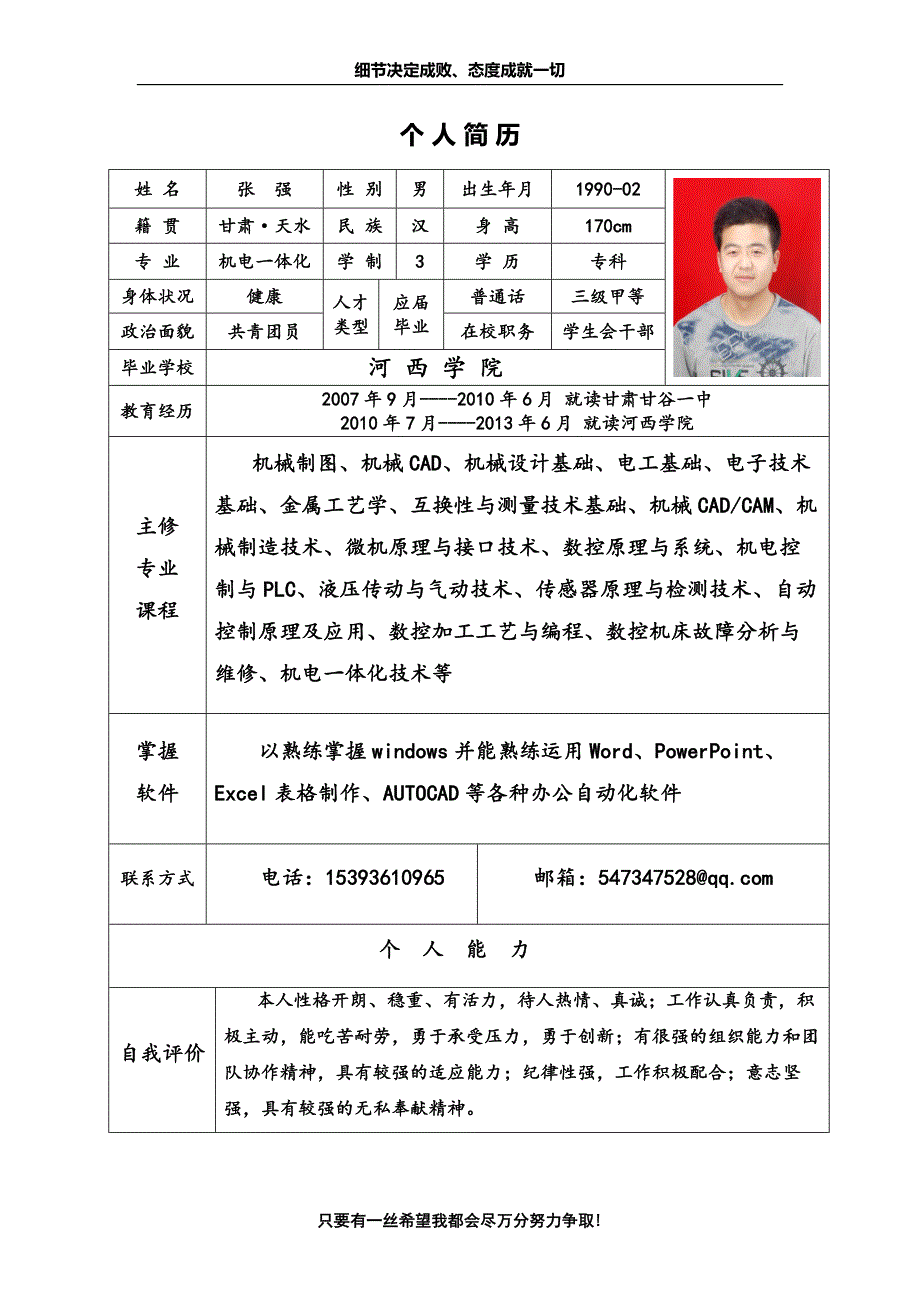 细节决定成败、态度成就一切
个人简历
姓 名 张 强 性 别 男 出生年月 1990-02
籍 贯 甘肃·天水 民 族 汉 身 高 170cm
专 业 机电一体化 学 制 3 学 历 专科
身体状况 健康 人才类型 应届毕业 普通话 三级甲等
政治面貌 共青团员 在校职务 学生会干部
毕业学校 河 西 学 院
教育经历
2007年9月----2010年6月 就读甘肃甘谷一中
2010年7月----2013年6月 就读河西学院
主修
专业
课程
机械制图、机械CAD、机械设计基础、电工基础、电子技术
基础、金属工艺学、互换性与测量技术基础、机械CAD/CAM、机
械制造技术、微机原理与接口技术、数控原理与系统、机电控
制与PLC、液压传动与气动技术、传感器原理与检测技术、自动
控制原理及应用、数控加工工艺与编程、数控机床故障分析与
维修、机电一体化技术等
掌握
软件
以熟练掌握windows并能熟练运用Word、PowerPoint、
Excel表格制作、AUTOCAD等各种办公自动化软件
联系方式 电话：15393610965 邮箱：547347528@qq.com
个 人 能 力
自我评价
本人性格开朗、稳重、有活力，待人热情、真诚；工作认真负责，积
极主动，能吃苦耐劳，勇于承受压力，勇于创新；有很强的组织能力和团
队协作精神，具有较强的适应能力；纪律性强，工作积极配合；意志坚
强，具有较强的无私奉献精神。
只要有一丝希望我都会尽万分努力争取！